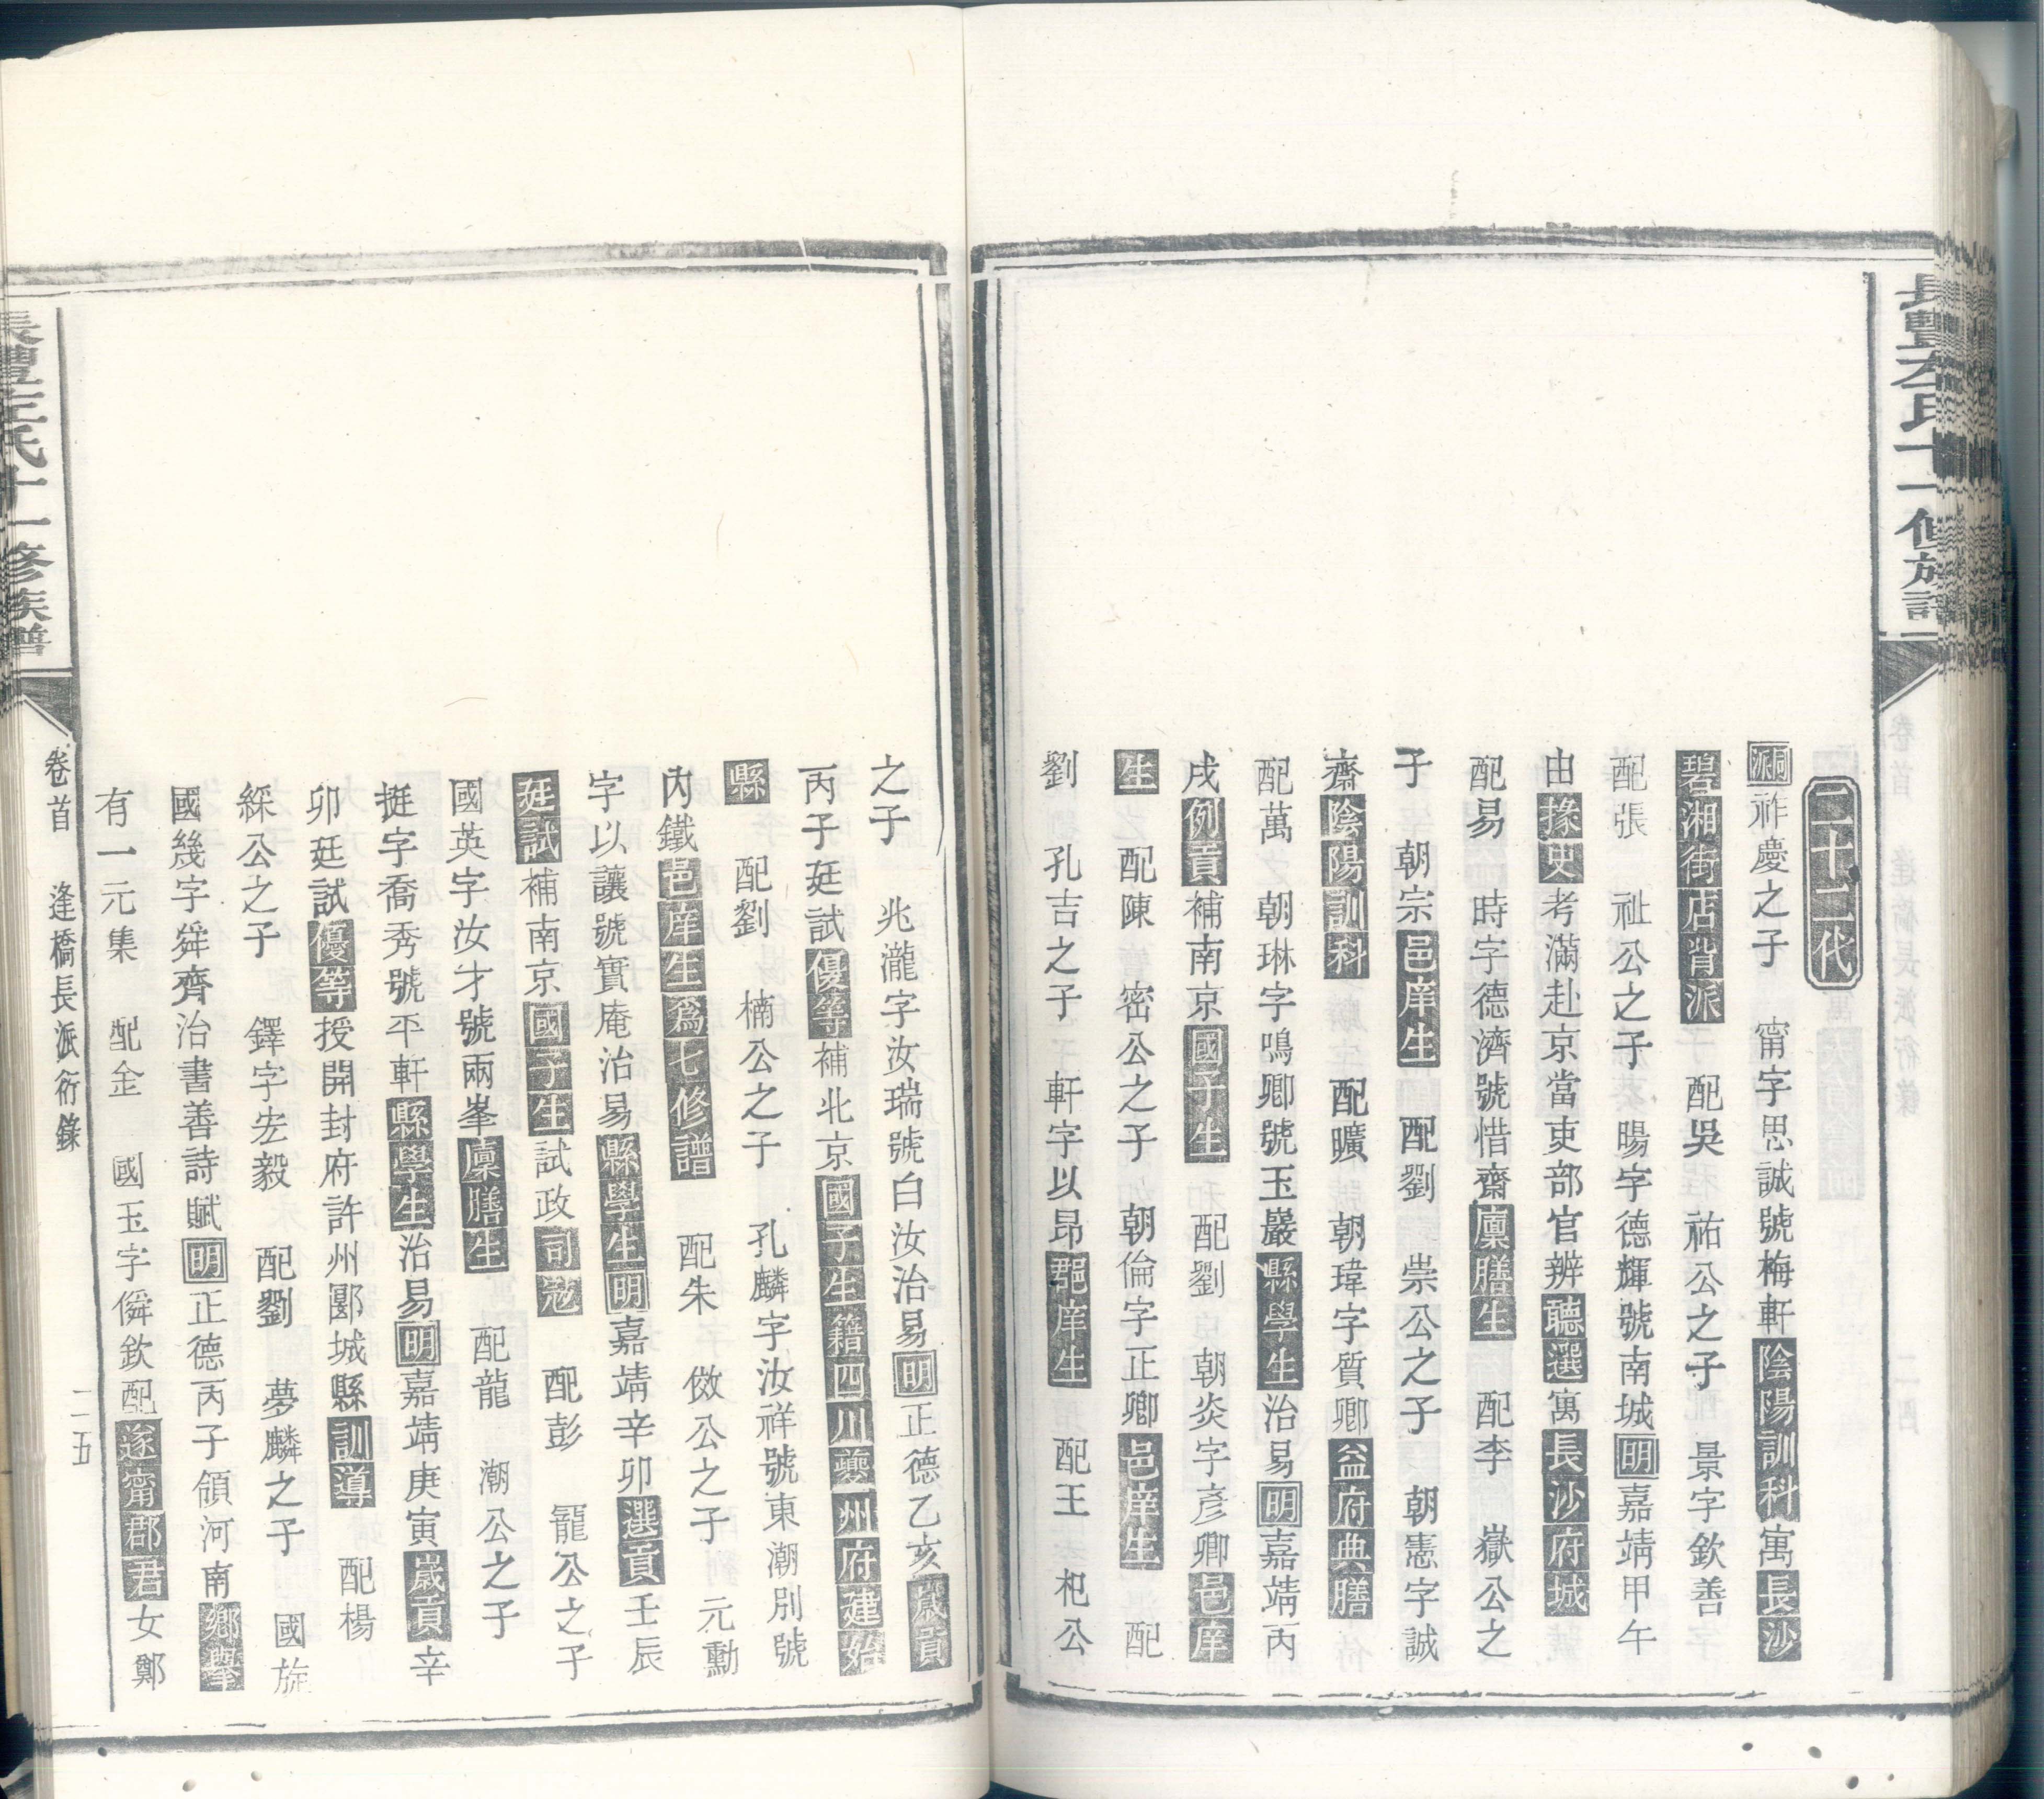 長豐左氏十一修族譜
二十二代
祚慶之子　甯字思誠號梅軒陰陽訓科寓長沙
碧湘街店背派　配吳　祐公之子　景字欽善
配張　祉公之子　暘字德輝號南城明嘉靖甲午
由掾史考滿赴京當吏部官辨聽選寓長沙府城
配易　時字德濟號惜齋廩膳生　配李　嶽公之
子　朝宗邑庠生　配劉　崇公之子　朝憲字誠
齋陰陽訓科　配曠　朝瑋字質卿益府典膳
配萬　朝琳字鳴卿號玉巖縣學生治易明嘉靖丙
戌例貢補南京國子生　配劉　朝炎字彥卿邑庠
生　配陳　密公之子　朝倫字正卿邑庠生　配
劉　孔吉之子　軒字以昂郡庠生　配王　杞公
之子　兆瀧字汝瑞號白汝治易明正德乙亥歲貢
丙子廷試優等補北京國子生籍四川夔州府建始
縣　配劉　楠公之子　孔麟字汝祥號東潮別號
內鐵邑庠生爲七修譜　配朱　倣公之子　元勳
字以讓號實庵治易縣學生明嘉靖辛卯選貢壬辰
廷試補南京國子生試政司寇　配彭　寵公之子
國英字汝才號兩峯廩膳生　配龍　潮公之子
挺字喬秀號平軒縣學生治易明嘉靖庚寅歲貢辛
卯廷試優等授開封府許州郾城縣訓導　配楊
綵公之子　鐸字宏毅　配劉　夢麟之子　國旋
國幾字舜齊治書善詩賦明正德丙子領河南鄉舉
有一元集　配金　國玉字僢欽配遂甯郡君女鄭
卷首　逢橋長派衍錄　二五
長豐左氏十一修族譜